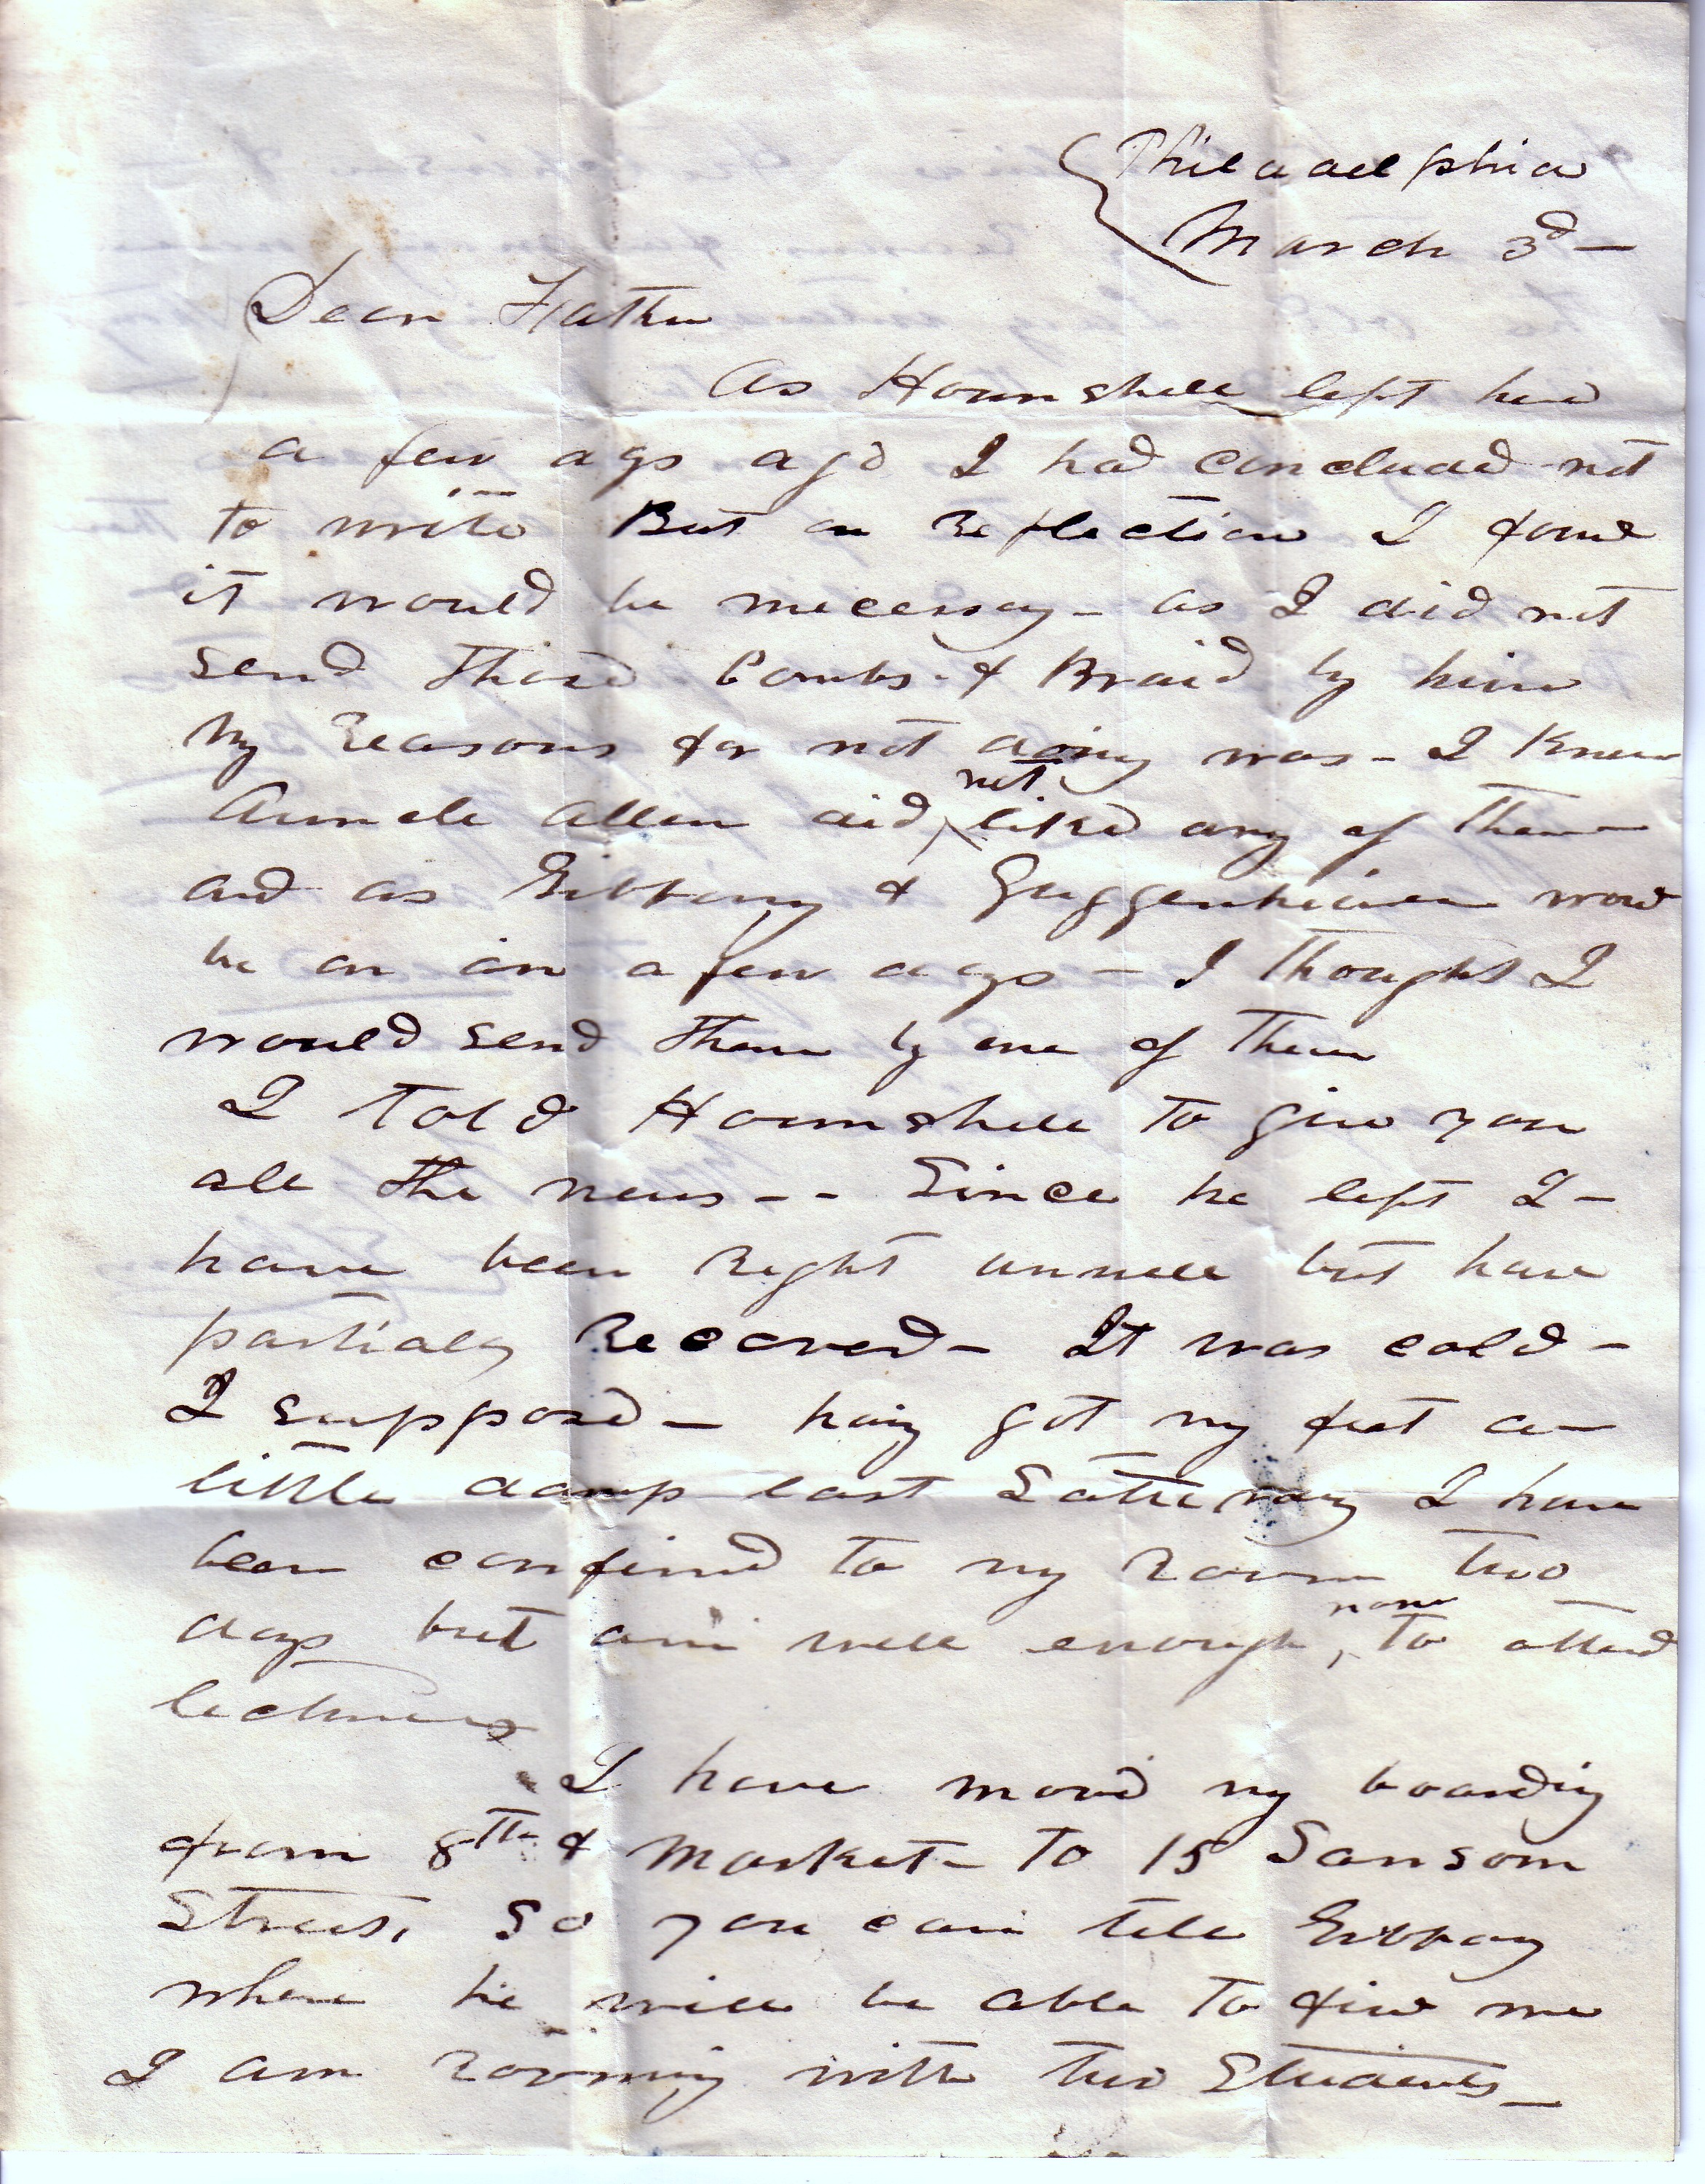 Philadelphia
March 3d —
Dear Father
As Hounshell left here
a few days ago I had concluded not
to write But on Reflection I found
it would be necessary — as I did not
send those Combs & Braid by him
My Reasons for not doing was — I knew
Aunt Allen did not like any of them
and as Gibbony & Guggenheimer would
be on in a few days — I thought I
would send them by one of them
I told Hounshell to give you
all the news - - Since he left I —
have been Right unwell but have
partialy Recovered — It was cold —
I suppose — having got my feet a —
little damp last Saturday I have
been confined to my room two
days but am well enough now to attend
lectures
I have moved my boarding
from 8th & Market — to 15 Sansom
Street, So you can tell Gibbony
where he will be able to find me
I am rooming with two Students —